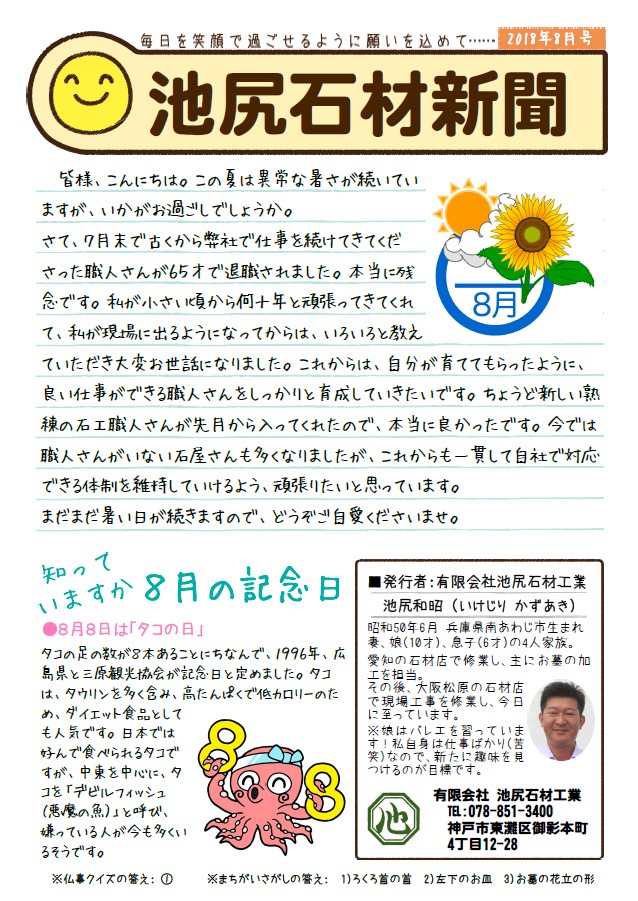 毎日を笑顔で過ごせるように願いを込めて……
2018年8月号
池尻石材新聞
皆様、こんにちは。この夏は異常な暑さが続いてい
ますが、いかがお過ごしでしょうか。
さて、7月末で古くから弊社で仕事を続けてきてくだ
さった職人さんが65才で退職されました。本当に残
念です。私が小さい頃から何十年と頑張ってきてくれ
て、私が現場に出るようになってからは、いろいろと教え
ていただき大変お世話になりました。これからは、自分が育ててもらったように、
良い仕事ができる職人さんをしっかりと育成していきたいです。ちょうど新しい熟
練の石工職人さんが先月から入ってくれたので、本当に良かったです。今では
職人さんがいない石屋さんも多くなりましたが、これからも一貫して自社で対応
できる体制を維持していけるよう、頑張りたいと思っています。
まだまだ暑い日が続きますので、どうぞご自愛くださいませ。
8月
知って
いますか 8月の記念日
●8月8日は「タコの日」
タコの足の数が8本あることにちなんで、1996年、広
島県と三原観光協会が記念日と定めました。タコ
は、タウリンを多く含み、高たんぱくで低カロリーのた
め、ダイエット食品として
も人気です。日本では
好んで食べられるタコで
すが、中東を中心に、タ
コを『デビルフィッシュ
(悪魔の魚)』と呼び、
嫌っている人が今も多くい
るそうです。
8 8
■発行者:有限会社池尻石材工業
池尻和昭(いけじり かずあき)
昭和50年6月 兵庫県南あわじ市生まれ
妻、娘(10才)、息子(6才)の4人家族。
愛知の石材店で修業し、主にお墓の加
工を担当。
その後、大阪松原の石材店
で現場工事を修業し、今日
に至っています。
※娘はバレエを習っていま
す!私自身は仕事ばかり(苦
笑)なので、新たに趣味を見
つけるのが目標です。
池
有限会社 池尻石材工業
TEL:078-851-3400
神戸市東灘区御影本町
4丁目12-28
※仏事クイズの答え: ①
※まちがいさがしの答え: 1)ろくろ首の首 2)左下のお皿 3)お墓の花立の形